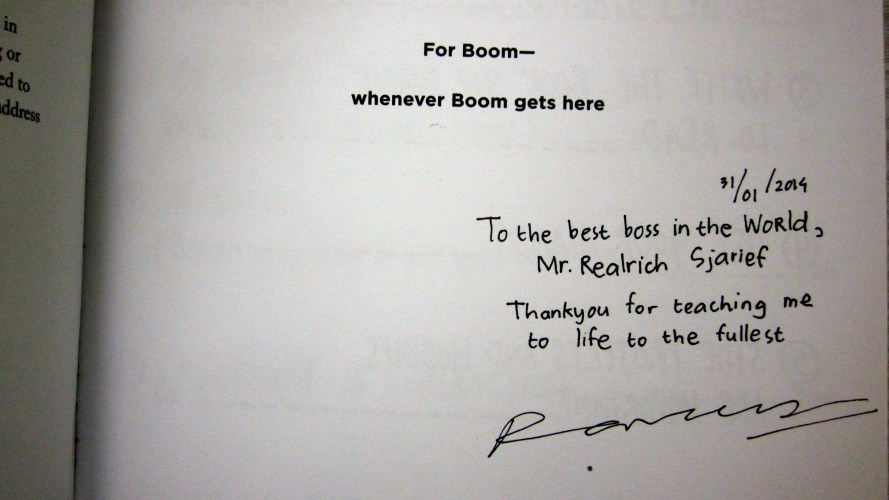 in
or
ed to
ddress
For Boom—
whenever Boom gets here
31/01/2014
To the best boss in the World,
Mr. Realrich Sjarief
Thankyou for teaching me
to life to the fullest